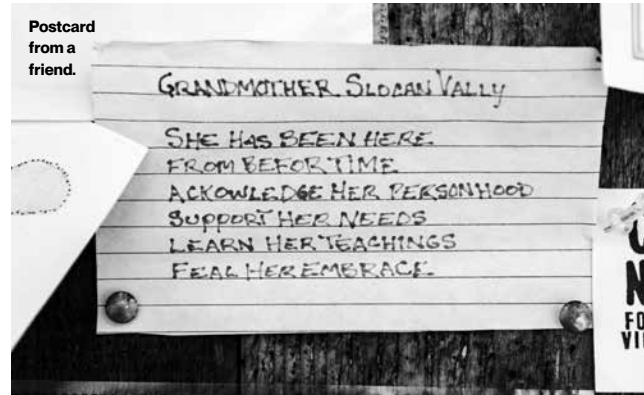 Postcard
from a
friend.
GRANDMOTHER SLOCAN VALLY
SHE HAS BEEN HERE
FROM BEFOR TIME
ACKOWLEDGE HER PERSONHOOD
SUPPORT HER NEEDS
LEARN HER TEACHINGS
FEAL HER EMBRACE